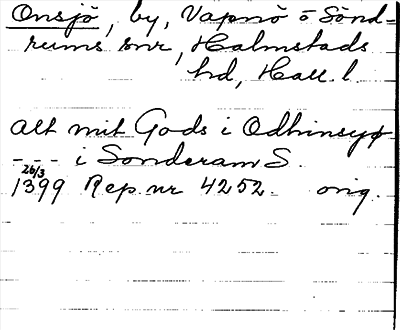 Onsjö, by, Vapnö o Sönd-
rums snr, Halmstads
hd, Hall. l.
alt mit Gods i Odhinsyø
- - - i Sonderam S.
26/3
1399 Rep. nr 4252. orig.